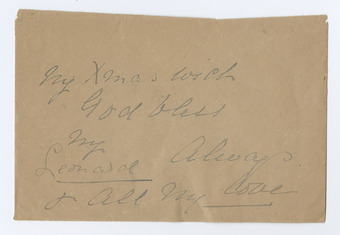 My Xmas wish
God bless
my
Leonard Always.
& All My love